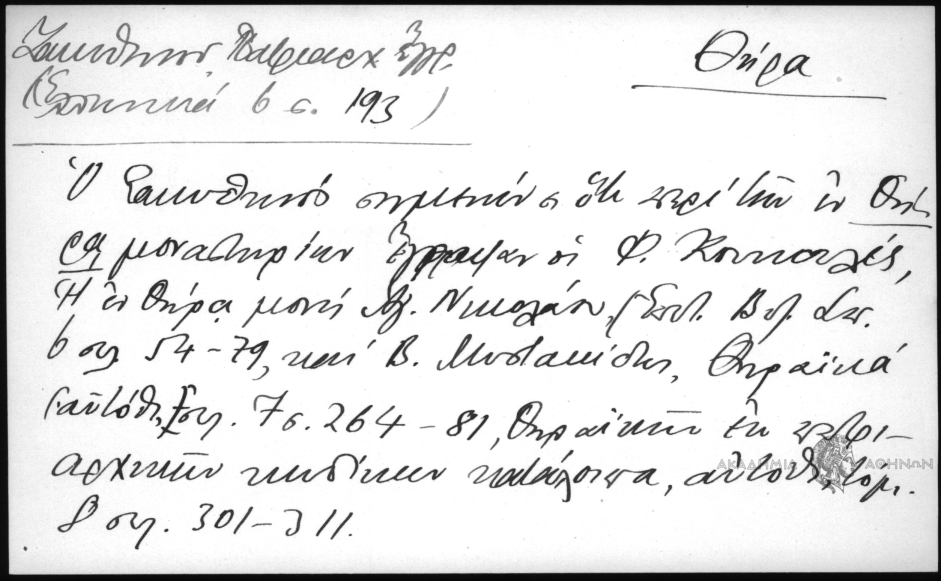 Ζακυθηνοῦ Πατριαρχ. Ἔγγρ. Θήρα
(Ἑλληνικά 6 σ. 193)
Ὁ Ζακυθηνός σημειώνει ὅτι περί τῶν ἐν Θή-
ρᾳ μοναστηρίων ἔγραψαν οἱ Φ. Κουκουλές,
Ἡ ἐν Θήρᾳ μονή Ἁγ. Νικολάου, (Ἐπετ. Βυζ. Σπ.
6 σελ 54-79, καί Β. Μυστακίδης, Θηραϊκά
(αὐτόθι, σελ. 7 σ. 264-81, Θηραϊκῶν ἐκ πατρι-
αρχικῶν κωδίκων κατάλοιπα, αὐτόθι, τόμ.
8 σελ. 301-311.
ΑΚΑΔΗΜΙΑ ΑΘΗΝΩΝ